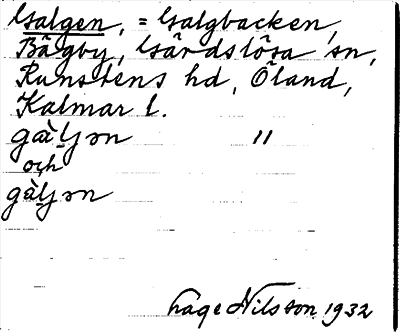 Galgen, = Galgbacken,
Bägby, Gärdslösa sn,
Runstens hd, Öland,
Kalmar l.
gàl̠jən "
och
gàl̠jən
Lage Nilsson 1932